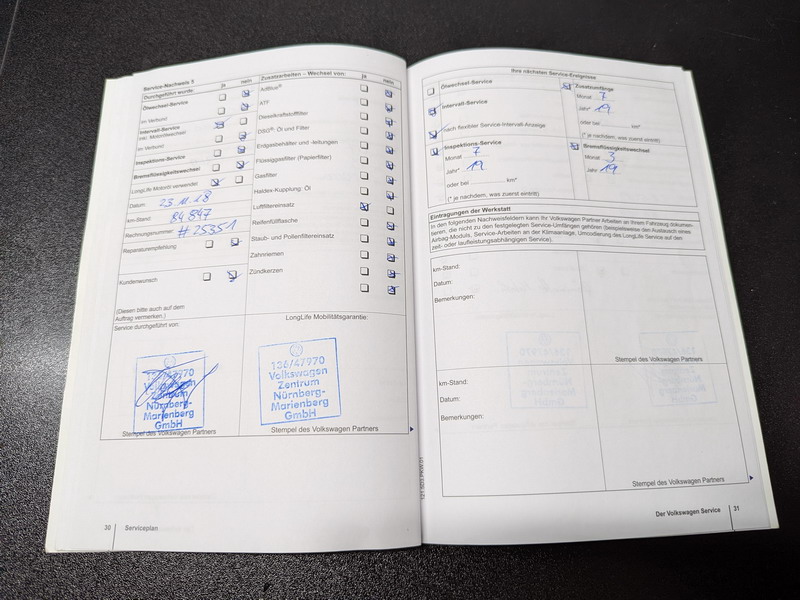 Service-Nachweis 5
ja nein
Durchgeführt wurde:
Ölwechsel-Service
im Verbund
Intervall-Service
inkl. Motorölwechsel
im Verbund
Inspektions-Service
Bremsflüssigkeitswechsel
LongLife Motoröl verwendet
Datum: 23.11.18
km-Stand: 84 847
Rechnungsnummer: #25351
Reparaturempfehlung
Kundenwunsch
(Diesen bitte auch auf dem
Auftrag vermerken.)
Service durchgeführt von:
136/47970
Volkswagen
Zentrum
Nürnberg-
Marienberg
GmbH
Stempel des Volkswagen Partners
Zusatzarbeiten – Wechsel von:
ja nein
AdBlue®
ATF
Dieselkraftstofffilter
DSG®: Öl und Filter
Erdgasbehälter und -leitungen
Flüssiggasfilter (Papierfilter)
Gasfilter
Haldex-Kupplung: Öl
Luftfiltereinsatz
Reifenfüllflasche
Staub- und Pollenfiltereinsatz
Zahnriemen
Zündkerzen
LongLife Mobilitätsgarantie:
136/47970
Volkswagen
Zentrum
Nürnberg-
Marienberg
GmbH
Stempel des Volkswagen Partners
30 Serviceplan
Ihre nächsten Service-Ereignisse
Ölwechsel-Service
Intervall-Service
nach flexibler Service-Intervall-Anzeige
Zusatzumfänge
Monat 7
Jahr 19
oder bei km*
(* je nachdem, was zuerst eintritt)
Inspektions-Service
Monat 7
Jahr* 19
oder bei km*
(* je nachdem, was zuerst eintritt)
Bremsflüssigkeitswechsel
Monat 3
Jahr 19
Eintragungen der Werkstatt
In den folgenden Nachweisfeldern kann Ihr Volkswagen Partner Arbeiten an Ihrem Fahrzeug dokumen-
tieren, die nicht zu den festgelegten Service-Umfängen gehören (beispielsweise den Austausch eines
Airbag-Moduls, Service-Arbeiten an der Klimaanlage, Umcodierung des LongLife Service auf den
zeit- oder laufleistungsabhängigen Service).
km-Stand:
Datum:
Bemerkungen:
Stempel des Volkswagen Partners
km-Stand:
Datum:
Bemerkungen:
Stempel des Volkswagen Partners
Der Volkswagen Service 31